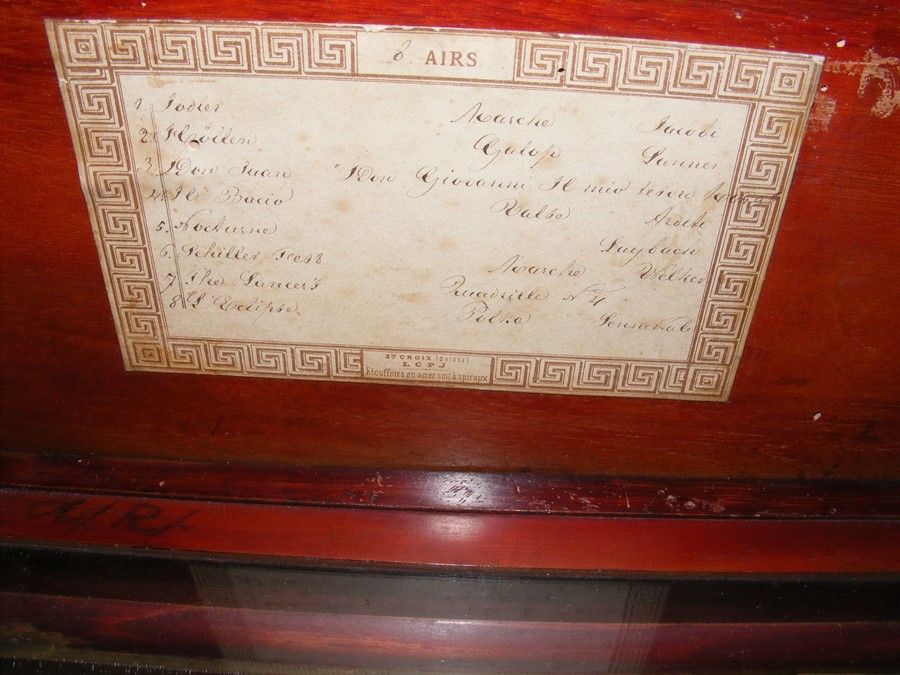 8 AIRS
1 Jodler Marche Jacobi
2. Höllen Galop Lanner
3. Don Juan "Don Giovanni Il mio tesoro Mozart
4. Il Bacio Valse Arditi
5. Nocturne Leybach
6. Schiller Fest Marche Welker
7 The Lancer's Quadrille N° 4
8 L'Eclipse Polka
STE CROIX (SUISSE)
L C F J
Etouffoirs en acier soit à spiraux